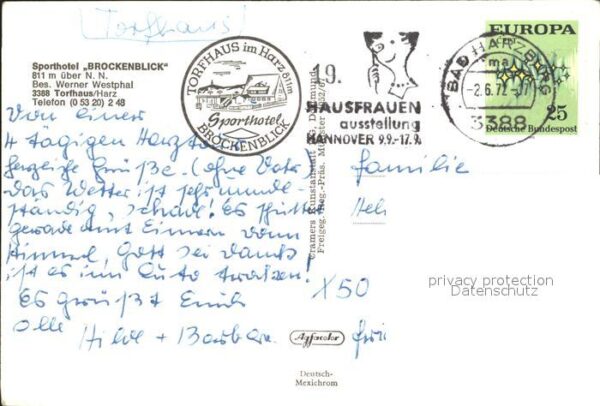 [Torfhaus]
Sporthotel „BROCKENBLICK"
811 m über N. N.
Bes. Werner Westphal
3388 Torfhaus/Harz
Telefon (0 53 20) 2 48
TORFHAUS im Harz 811m
Sporthotel
BROCKENBLICK
19.
HAUSFRAUEN
ausstellung
HANNOVER 9.9.-17.9.
BAD HARZBURG
-2.6.72.-17
3388
EUROPA
25
Deutsche Bundespost
Von einer
4 tägigen Harztour
herzliche Grüße. (ohne Vater)
Das Wetter ist sehr
schade! Es schüttet
gerade mit Eimern vom
Himmel, Gott sei Dank
ist es im Auto trocken!
Es grüßt Euch
alle
Hilde + Barbara
Cramers Kunstanstalt KG, Dortmund
Freigeg. Reg.-Präs. Münster
Familie
Hel
X50
privacy protection
Datenschutz
Agfacolor
Deutsch-
Mexichrom